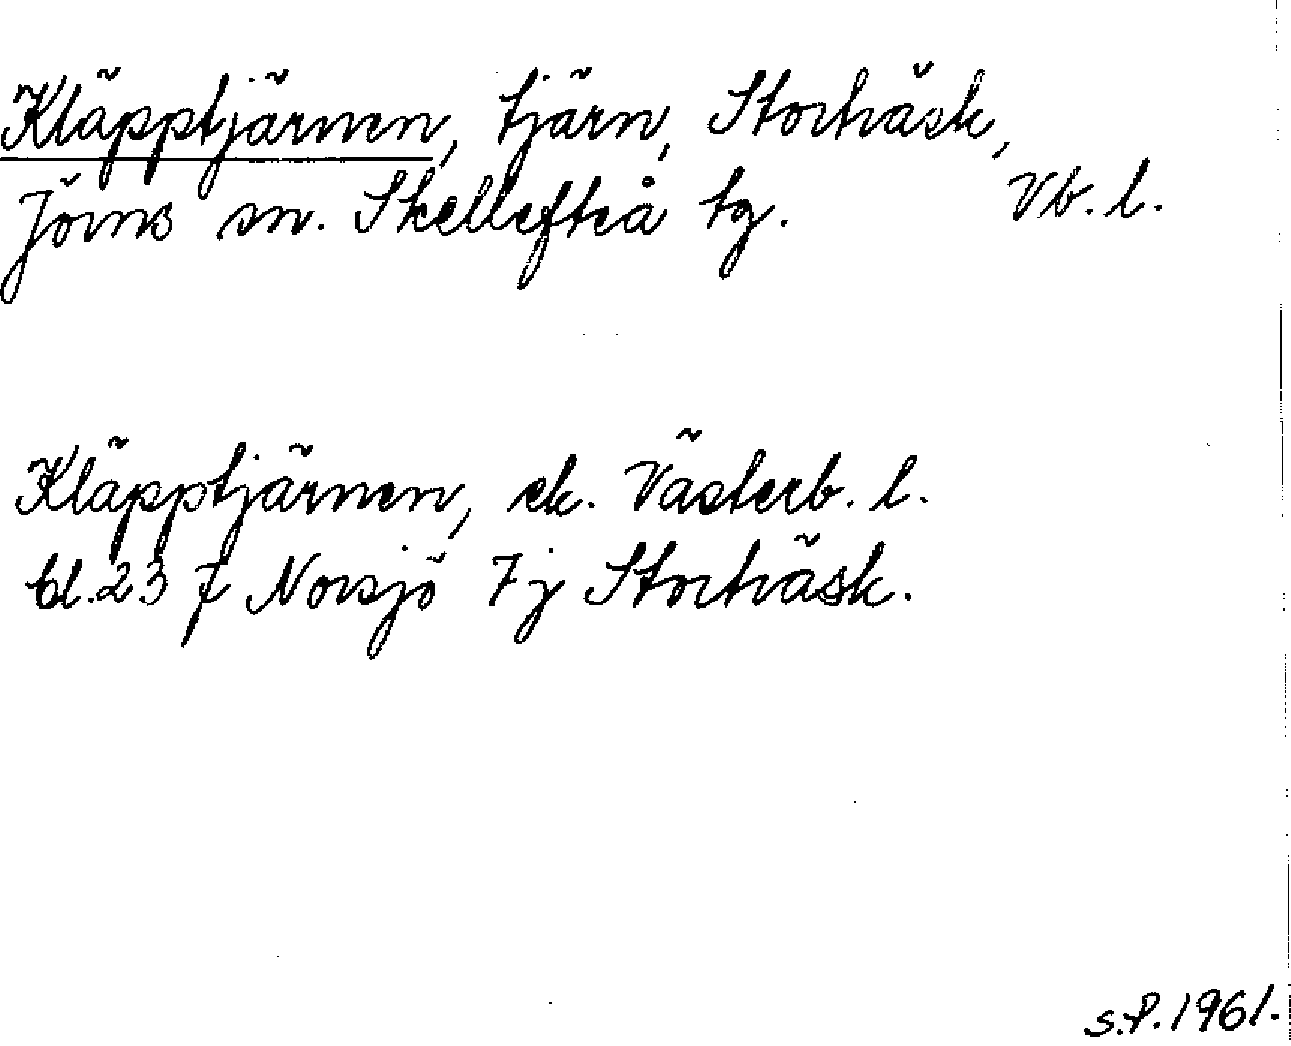 Kläpptjärnen, tjärn, Storträsk,
Jörns sn. Skellefteå tg. Vb. l.
Kläpptjärnen, ek. Västerb. l.
bl. 23 J Norsjö 7j Storträsk.
S.P. 1961.